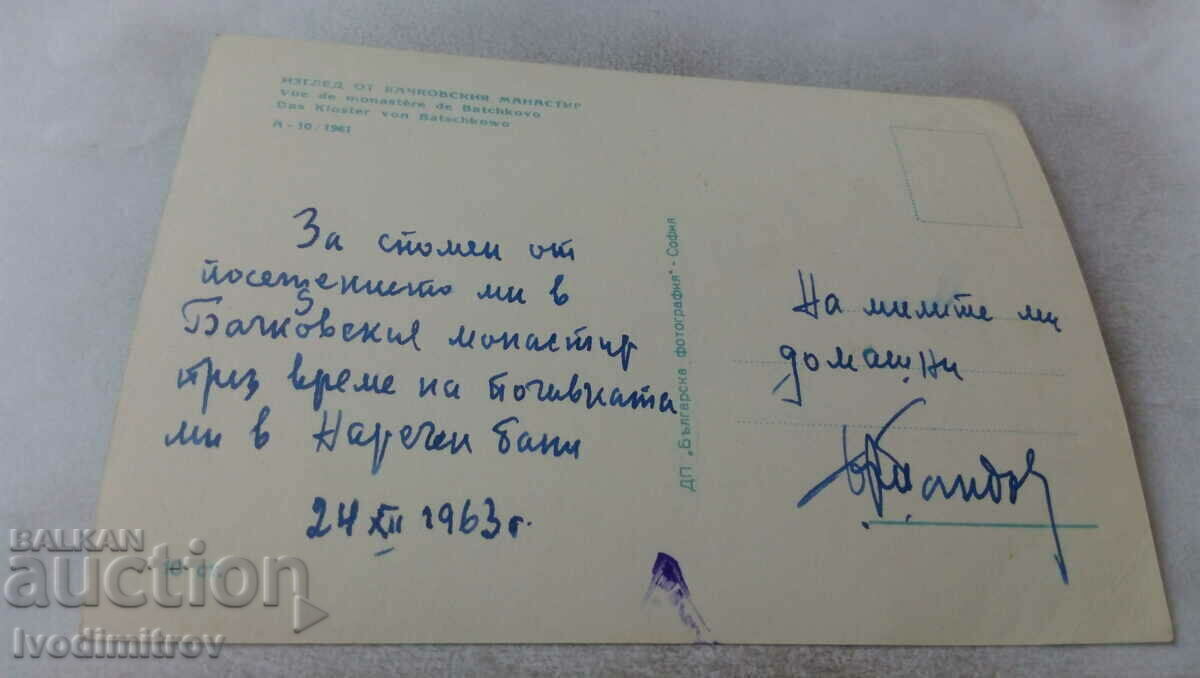 ИЗГЛЕД ОТ БАЧКОВСКИЯ МАНАСТИР
Vue de monastère de Batchkovo
Das Kloster von Batschkowo
А - 10 / 1961
За спомен от
посещението ми в
Бачковския монастир
през време на почивката
ми в Наречен баня
24 XII 1963 г.
10 ст.
ДП „Българска фотография" - София
На милите ми
домашни
BALKAN
auction
Ivodimitrov